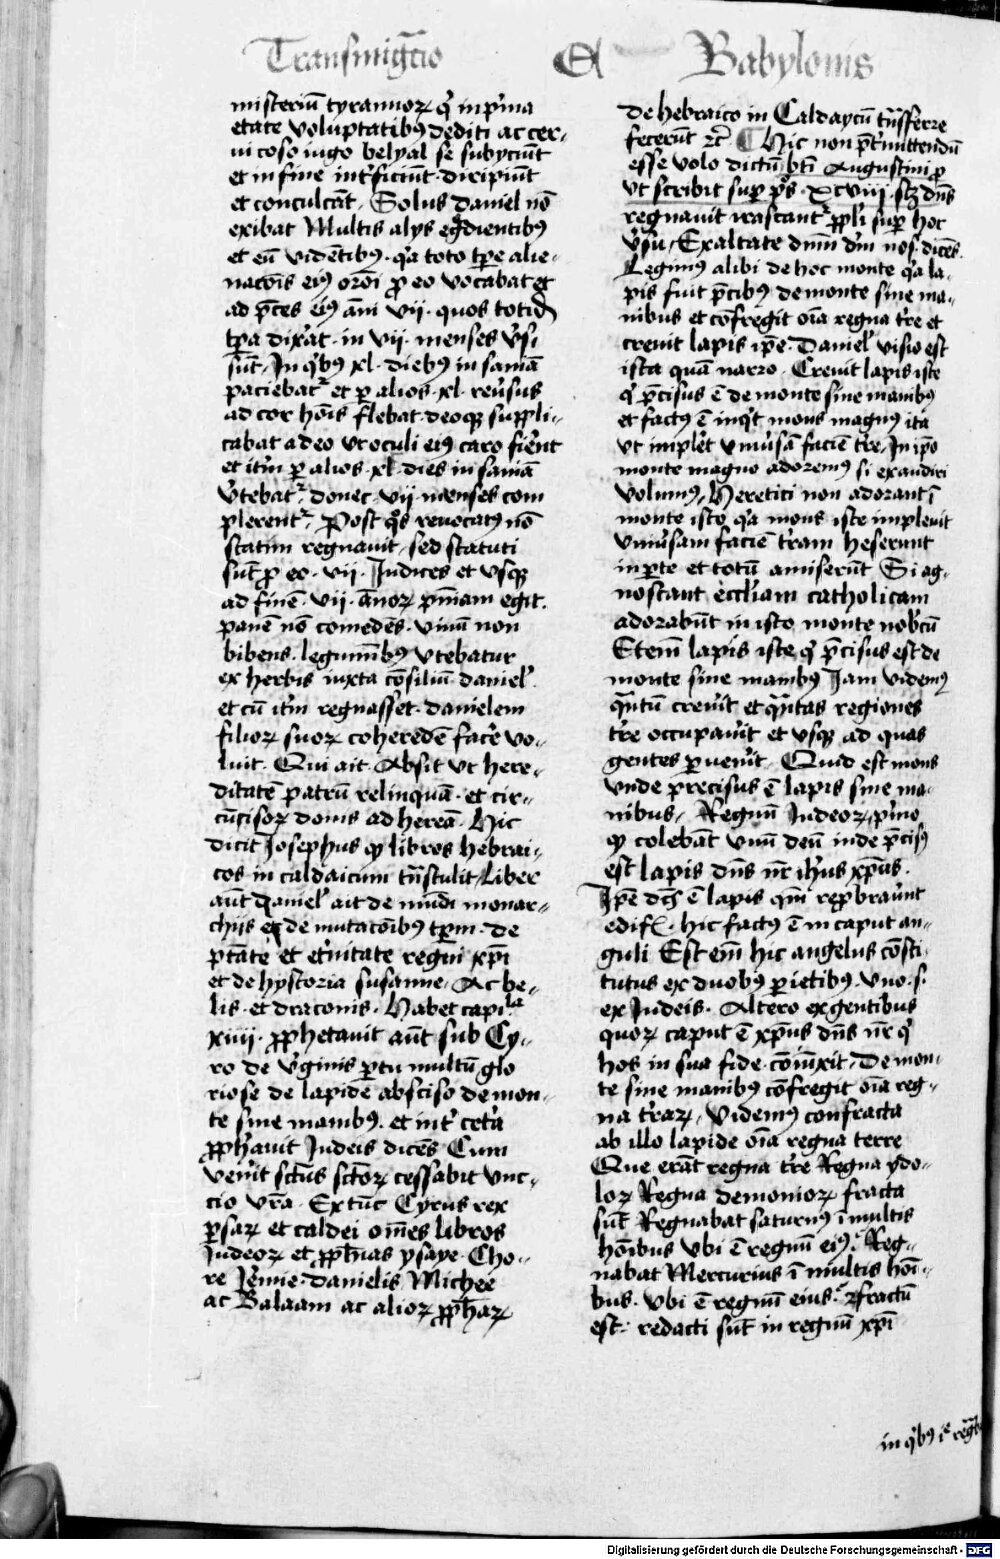 Transmigr̄acio Et Babylonis
misteriū tyrannoꝝ qͥ in pͥma
etate voluptatibꝯ dediti ac cer-
ui coso iugo belyal se subyciūt
et in fine int̓ficiūt · diripiūt
et conculcāt / Solus Daniel nō
exibat Multis alys eg̓dientibꝯ
et eū vidētibꝯ · qͥa toto tꝑe alie-
nacōis eiꝯ orōi ꝓ eo vocabat et
ad p̄ces eiꝯ āni vii · quos totid̄
tꝑa dix̓at · in vii · menses v̓si
sūt / In qͥbꝯ xl · diebꝯ in saniā
paciebat᷑ et ꝑ alios · xl · reu̓sus
ad cor hōis flebat · deoqꝫ suppli-
cabat adeo vt oculi eiꝯ caro fier̄ent
et itm̓ ꝑ alios · xl · dies in saniā
v̓tebat᷑ · donec · vii · menses com
plerent᷑ · Post qͦs reuocatꝯ nō
statim regnauit / sed statuti
sūt ꝓ eo · vii · Iudices et vsqꝫ
ad finē · vii · ānoꝝ pn̄iam egit ·
panē nō comedēs · vinū non
bibens · leguminibꝯ vtebatur
ex herbis iuxta cōsiliū daniel̓ ·
et cū itm̓ regnasset · danielem
filioꝝ suoꝝ coheredē fac̓e vo-
luit · Qui ait · Absit vt here-
ditatē patrū relinquā · et cir-
cūcisoꝝ donis adhereā · Hic
dicit Josephus qꝫ libros hebrai-
cos in caldaicum tn̄stulit / Liber
aūt Daniel̓ ait de mūdi monar-
chijs et de mutacōibꝯ tꝑm · de
ptāte et et̓nitate regni xp̄i
et de hystoria susanne · Ac be-
lis · et draconis · Habet capi.la
xiiii · ꝓphetauit aūt sub Cy-
ro de v̓ginis ꝑtu multū glo
riose de lapide absciso de mon-
te sine manibꝯ · et int̓ cet̓a
ꝓph̄auit Iudeis dicēs Cum
ven̓it sct̄us sct̄oꝝ cessabit vnc-
cio vr̄a · Ex tūc Cyrus rex
ꝑsaꝝ et caldei om̄es libros
Iudeoꝝ et ꝓph̄ias ysaye · Cho-
re Ier̓mie · danielis Michee
ac Balaam ac alioꝝ ꝓph̄aꝝ
de hebraico in Caldaycū tn̄sferre
fecerūt ⁊c̄ · ¶ Hic non p̄t̓mittendū
esse volo dictū bt̄i Augustini ꝓ
vt scribit suꝑ ps̄ · xcviii · sꝫ dn̄s
regnauit irascant᷑ ppl̓i suꝑ hoc
v̓su / Exaltate dnm̄ dm̄ nos̄ · dicēs ·
Legimꝯ alibi de hoc monte qͥa la-
pis fuit p̄cisꝯ de monte sine ma-
nibus et cōfregit oīa regna tr̓e et
creuit lapis ip̄e · Daniel̓ visio est
ista quā narro · Creuit lapis iste
qͥ p̄cisus ē de monte sine manibꝯ
et factꝯ ē inqͥt mons magnꝯ ita
vt impler̄et vniu̓sā faciē tr̓e / In ip̄o
monte magno adoremꝯ si exaudiri
volumꝯ / Heretici non adorant ī
monte isto qͥa mons iste impleuit
vniu̓sam faciē t̓ram heserunt
in ꝑte et totū amiserūt Si ag-
noscant eccl̓iam catholicam
adorabūt in isto monte nobc̄ū
Eten̄ lapis iste qͥ p̄cisus est de
monte sine manibꝯ Iam videmꝯ
qͣntū creu̓it et qͣntas regiones
tr̓e occupau̓it et vsqꝫ ad quas
gentes ꝑuen̓it · Quid est mons
vnde precisus ē lapis sine ma-
nibus · Regnū Iudeoꝝ pͥmo
qꝫ colebāt vnū deū inde p̄cisꝯ
est lapis dn̄s nr̄ ih̄us xp̄us ·
Ip̄e dc̄s ē lapis quē reꝓbrauu̓nt
edif · hic factꝯ ē in caput an-
guli Est em̄ hic angelus cōsti-
tutus ex duobꝯ ꝑietibꝯ · vno · s ·
ex Iudeis · Altero ex gentibus
quoꝝ caput ē xp̄us dn̄s nr̄ qͥ
hos in sua fide · cōiūxit / De mon-
te sine manibꝯ cōfregit oīa reg-
na t̓raꝝ / Videmꝯ confracta
ab illo lapide oīa regna terre
Que erāt regna tr̓e Regna ydo-
loꝝ Regna demonioꝝ fracta
sūt Regnabat saturnꝯ ī multis
hōibus vbi ē regnū eiꝯ · Reg-
nabat Mercurius ī multis hōi-
bus · vbi ē regnū eius · ꝯfractū
est · redacti sūt in regnū xp̄i
in qͥbꝯ
Digitalisierung gefördert durch die Deutsche Forschungsgemeinschaft - DFG